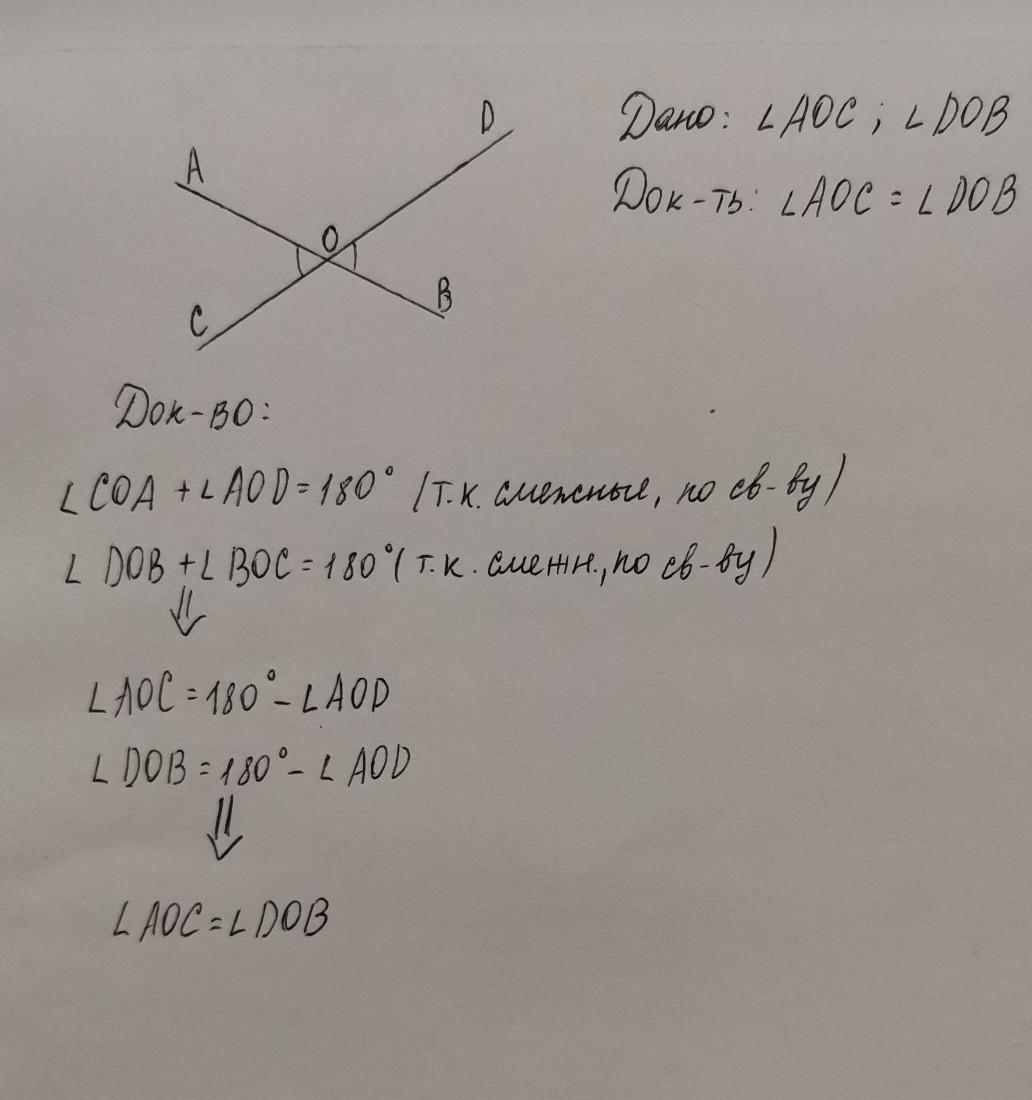 D
A
O
C
B
Дано: ∠AOC ; ∠DOB
Док-ть: ∠AOC = ∠DOB
Док-во:
∠COA + ∠AOD = 180° (т.к. смежные, по св-ву)
∠DOB + ∠BOC = 180° (т.к. смежн., по св-ву)
⇓
∠AOC = 180° - ∠AOD
∠DOB = 180° - ∠AOD
⇓
∠AOC = ∠DOB